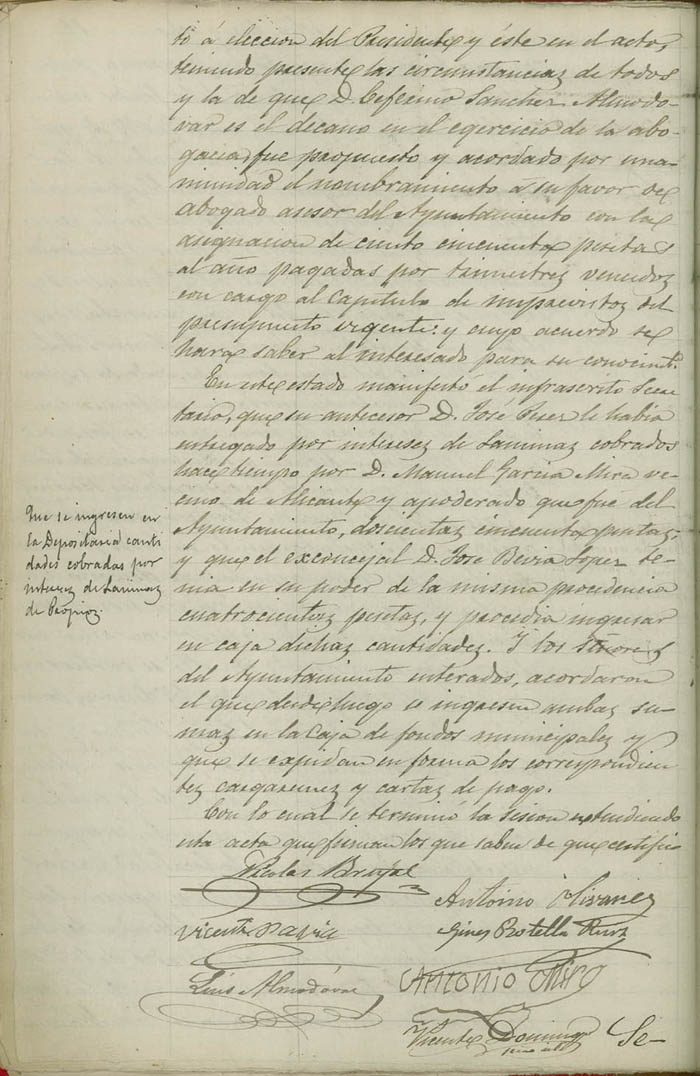 to á eleccion del Presidente y éste en el acto,
teniendo presente las circunstancias de todos
y la de que D. Ceferino Sanchez Almodo-
var es el decano en el egercicio de la abo-
gacia, fue propuesto y acordado por una-
nimidad el nombramiento á su favor de
abogado asesor del Ayuntamiento con la
asignacion de ciento cincuenta pesetas
al año pagadas por trimestres vencidos
con cargo al Capítulo de imprevistos del
presupuesto vigente: y cuyo acuerdo se
hará saber al interesado para su conocimto.
En este estado manifestó el infrascrito Secre
tario, que su antecesor D. José Perez le habia
entregado por intereses de Laminas cobrados
hace tiempo por D. Manuel Garcia Mira ve-
cino de Alicante y apoderado que fué del
Ayuntamiento, doscientas cincuenta pesetas;
y que el exconcejal D. Jose Bevia Lopez te-
nia en su poder de la misma procedencia
cuatrocientas pesetas, y procedia ingresar
en caja dichas cantidades. Y los Señores
del Ayuntamiento enterados, acordaron
el que desde luego se ingresen ambas su-
mas en la Caja de fondos municipales y
que se expidan en forma los correspondien
tes cargaremes y cartas de pago.
Con lo cual se terminó la sesion extendiendo
esta acta que firman los que saben de que certifico
Que se ingresen en
la Depositaria canti
dades cobradas por
intereses de Laminas
de Propios.
Nicolas Brufal
Antonio Olivarez
Vicente Pastor
Gines Botella Ruiz
Luis Almodóvar
Antonio Miro
Vicente Domingo
Se-